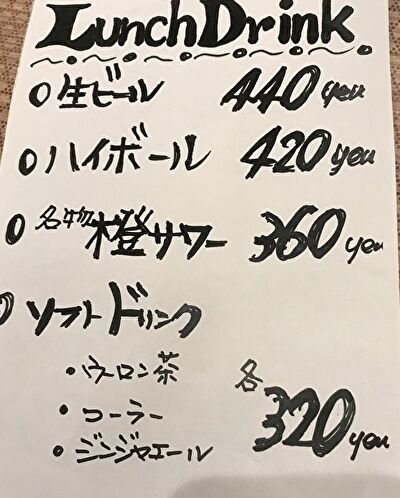 Lunch Drink
生ビール 440 yen
ハイボール 420 yen
名物 橙サワー 360 yen
ソフトドリンク
・ウーロン茶
・コーラー
・ジンジャエール
各 320 yen